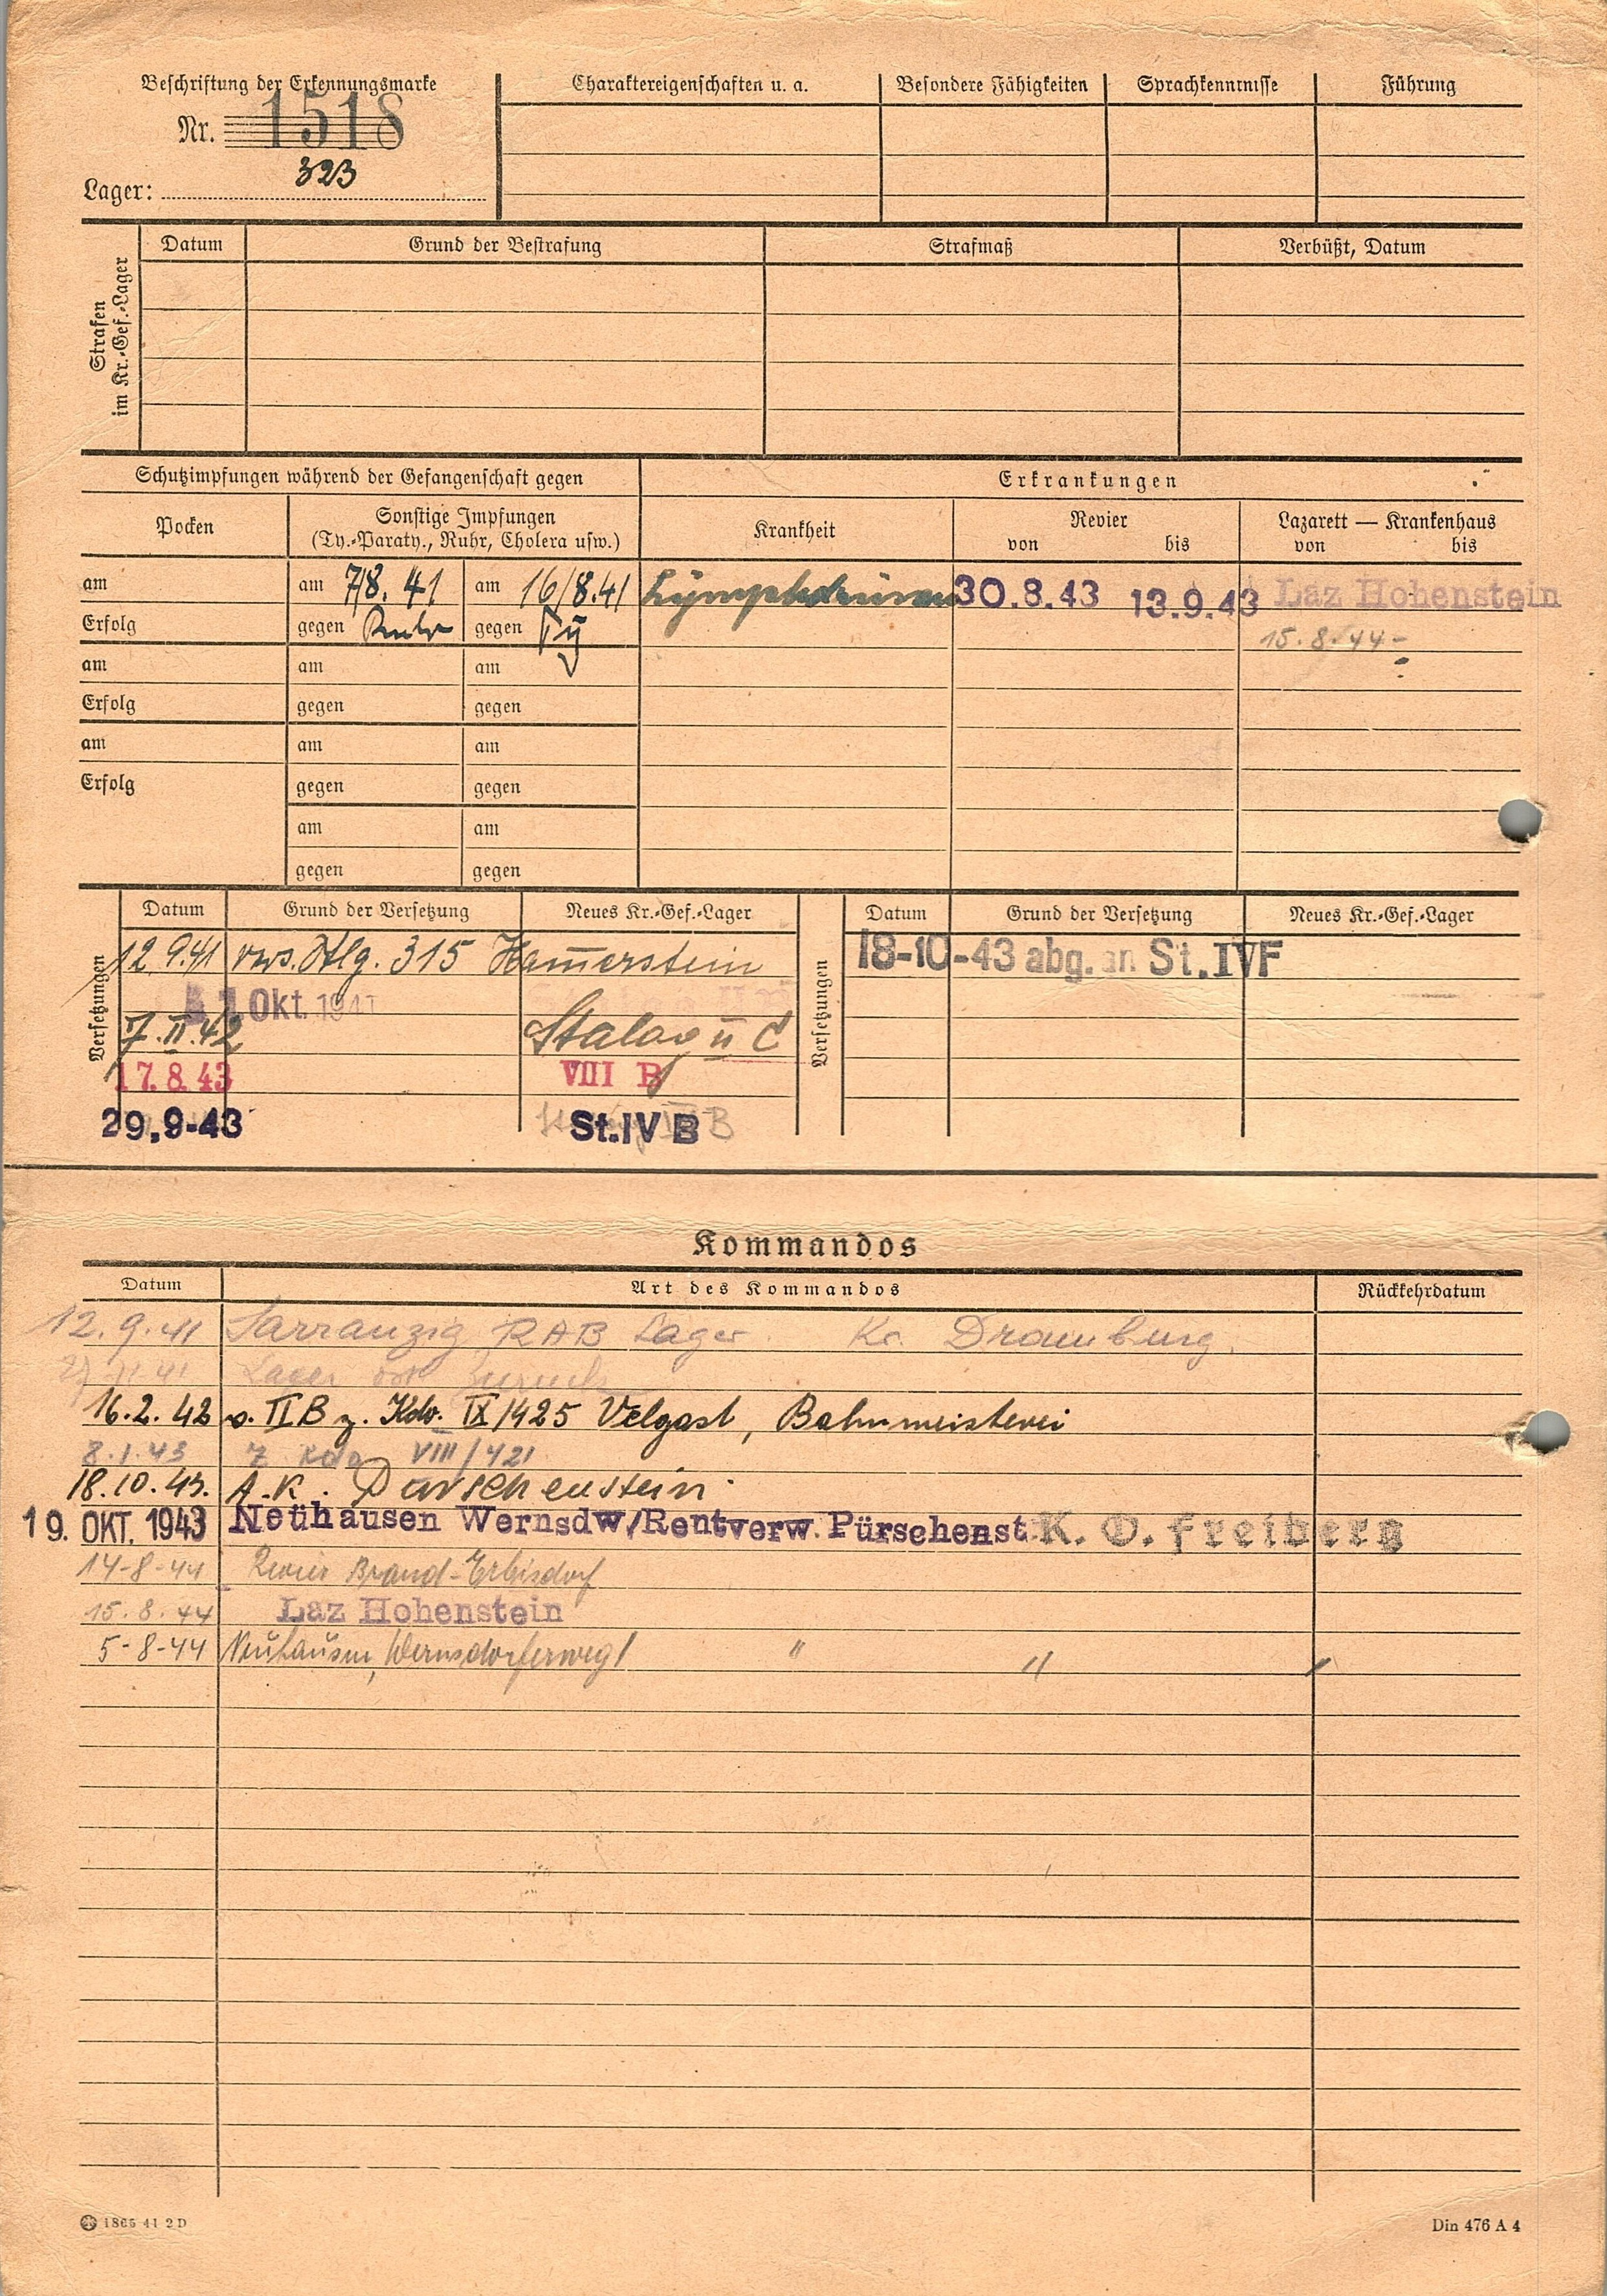 Beschriftung der Erkennungsmarke
Nr. 1518
Lager: 323
Charaktereigenschaften u. a. Besondere Fähigkeiten Sprachkenntnisse Führung
Strafen im Kr.-Gef.-Lager
Datum Grund der Bestrafung Strafmaß Verbüßt, Datum
Schutzimpfungen während der Gefangenschaft gegen
Erkrankungen
Pocken
Sonstige Impfungen
(Ty.-Paraty., Ruhr, Cholera usw.)
Krankheit
Revier
von bis
Lazarett — Krankenhaus
von bis
am am 7/8. 41 am 16/8.41 Lymphdrüsen 30.8.43 13.9.43 Laz Hohenstein
Erfolg gegen Ruhr gegen Ty 15.8.44-
am am am
Erfolg gegen gegen
am am am
Erfolg gegen gegen
am am
gegen gegen
Versetzungen
Datum Grund der Versetzung Neues Kr.-Gef.-Lager
12 9.41 vers. Stlg. 315 Hamerstein
1 Okt. 1941
7.II.42 Stalag II C
17.8.43 VIII B
29.9-43 St.IV B
Versetzungen
Datum Grund der Versetzung Neues Kr.-Gef.-Lager
18-10-43 abg. an St.IVF
Kommandos
Datum Art des Kommandos Rückkehrdatum
12.9.41 Sarranzig RAB Lager Kr. Dramburg.
41 Lager zurück
16.2.42 v. II B z. Kdo. IX/425 Velgast, Bahnmeisterei
8.1.43 z Kdo VIII/421
18.10.43. A.K. Purschenstein.
19. OKT. 1943 Neuhausen Wernsdw/Rentverw. Pürschenst K. O. freiberg
14-8-44 Revier Brand-Erbisdorf
15.8.44 Laz Hohenstein
5-8-44 Neuhausen, Wernsdorferweg 1 " "
1865 41 2 D
Din 476 A 4